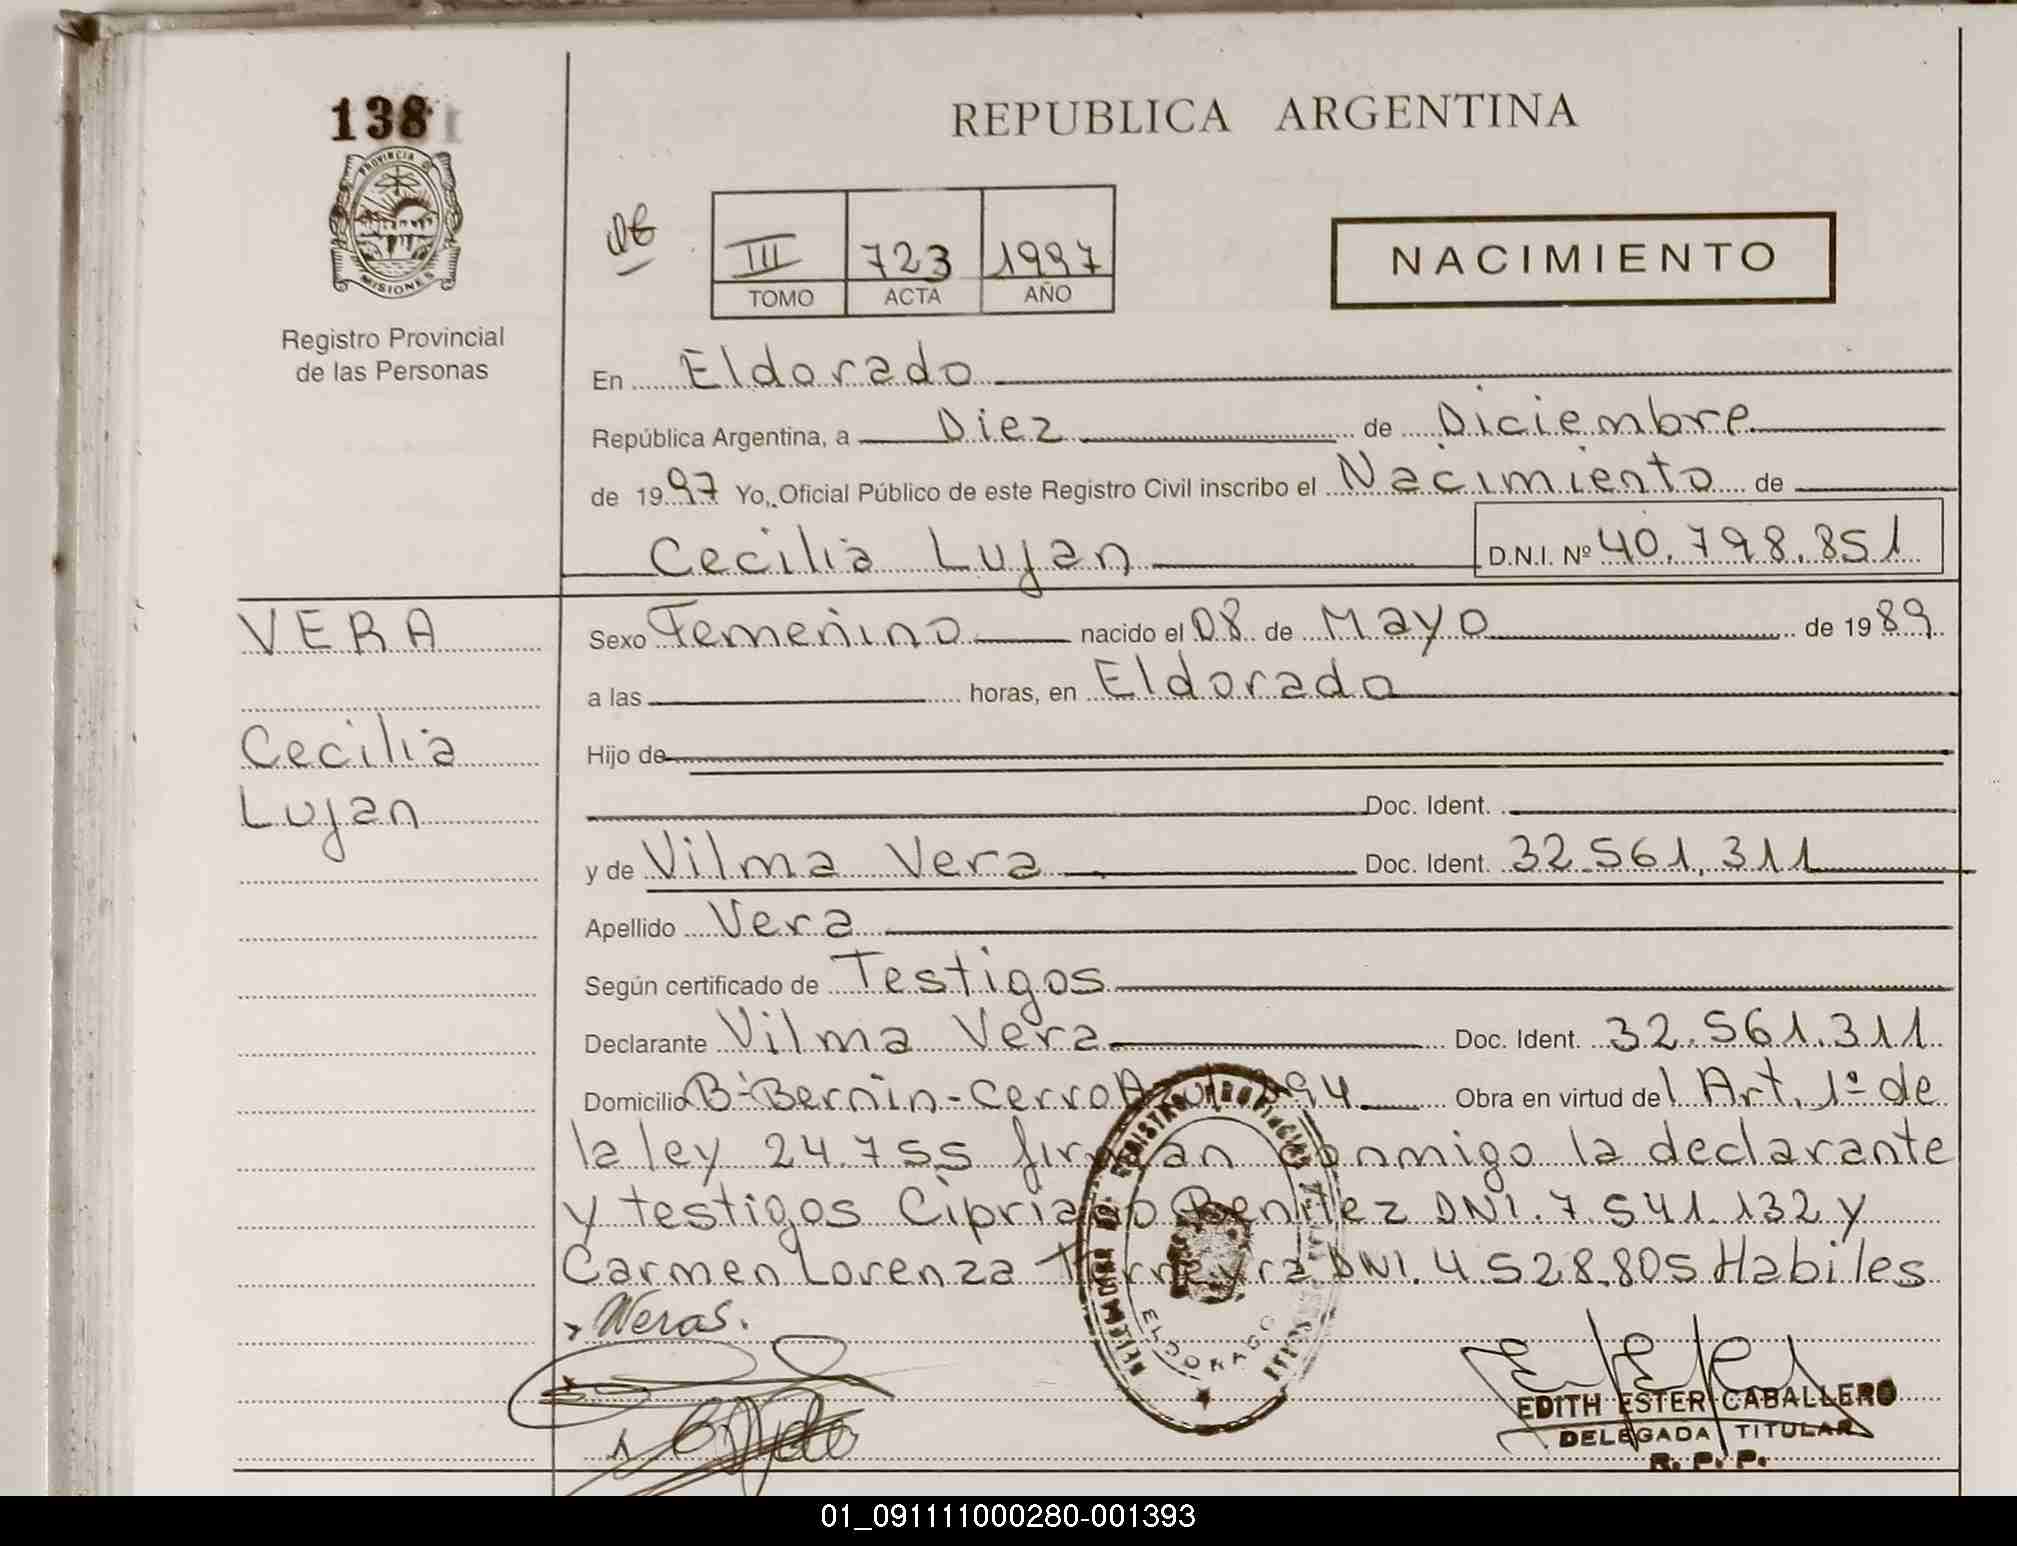 138
PROVINCIA D
MISIONES
Registro Provincial
de las Personas
REPUBLICA ARGENTINA
III 723 1997
TOMO ACTA AÑO
NACIMIENTO
En Eldorado
República Argentina, a Diez de Diciembre
de 1997 Yo, Oficial Público de este Registro Civil inscribo el Nacimiento de
Cecilia Lujan D.N.I. Nº 40.798.851
VERA
Cecilia
Lujan
Sexo Femenino nacido el 08 de Mayo de 1989
a las horas, en Eldorado
Hijo de
Doc. Ident.
y de Vilma Vera Doc. Ident. 32.561.311
Apellido Vera
Según certificado de Testigos
Declarante Vilma Vera Doc. Ident. 32.561.311
Domicilio Bº Bernin-Cerro 294 Obra en virtud del Art. 1º de
la ley 24.755 firman conmigo la declarante
y testigos Cipriano Benitez DNI. 7.541.132 y
Carmen Lorenza DNI. 4.528.805 Habiles
ELDORADO
EDITH ESTER CABALLERO
DELEGADA TITULAR
R. P. P.
01_091111000280-001393